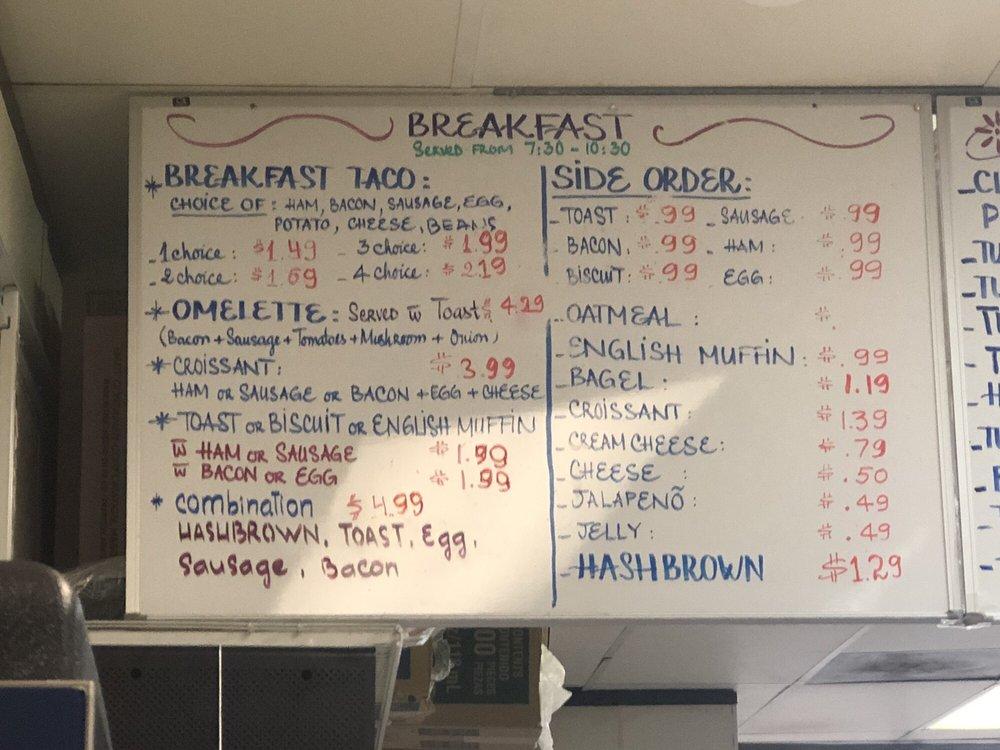 BREAKFAST
SERVED FROM 7:30 - 10:30
*BREAKFAST TACO:
CHOICE OF: HAM, BACON, SAUSAGE, EGG,
POTATO, CHEESE, BEANS
-1 choice: $1.49 - 3 choice: $1.99
-2 choice: $1.69 - 4 choice: $2.19
*OMELETTE: SERVED w̅ Toast $
(Bacon + Sausage + Tomatoes + Mushroom + Onion)
*CROISSANT: $3.99
HAM OR SAUSAGE OR BACON + EGG + CHEESE
*TOAST OR BISCUIT OR ENGLISH MUFFIN
w̅ HAM OR SAUSAGE $1.99
w̅ BACON OR EGG $1.99
* combination $4.99
HASHBROWN, TOAST, Egg,
Sausage, Bacon
SIDE ORDER:
-TOAST: $.99 - SAUSAGE $.99
-BACON. $.99 - HAM: $.99
BISCUIT: $.99 EGG: $.99
-OATMEAL: $.
-ENGLISH MUFFIN: $.99
-BAGEL: $1.19
-CROISSANT: $1.39
-CREAM CHEESE: $.79
-CHEESE: $.50
-JALAPENÕ: $.49
-JELLY: $.49
-HASHBROWN $1.29